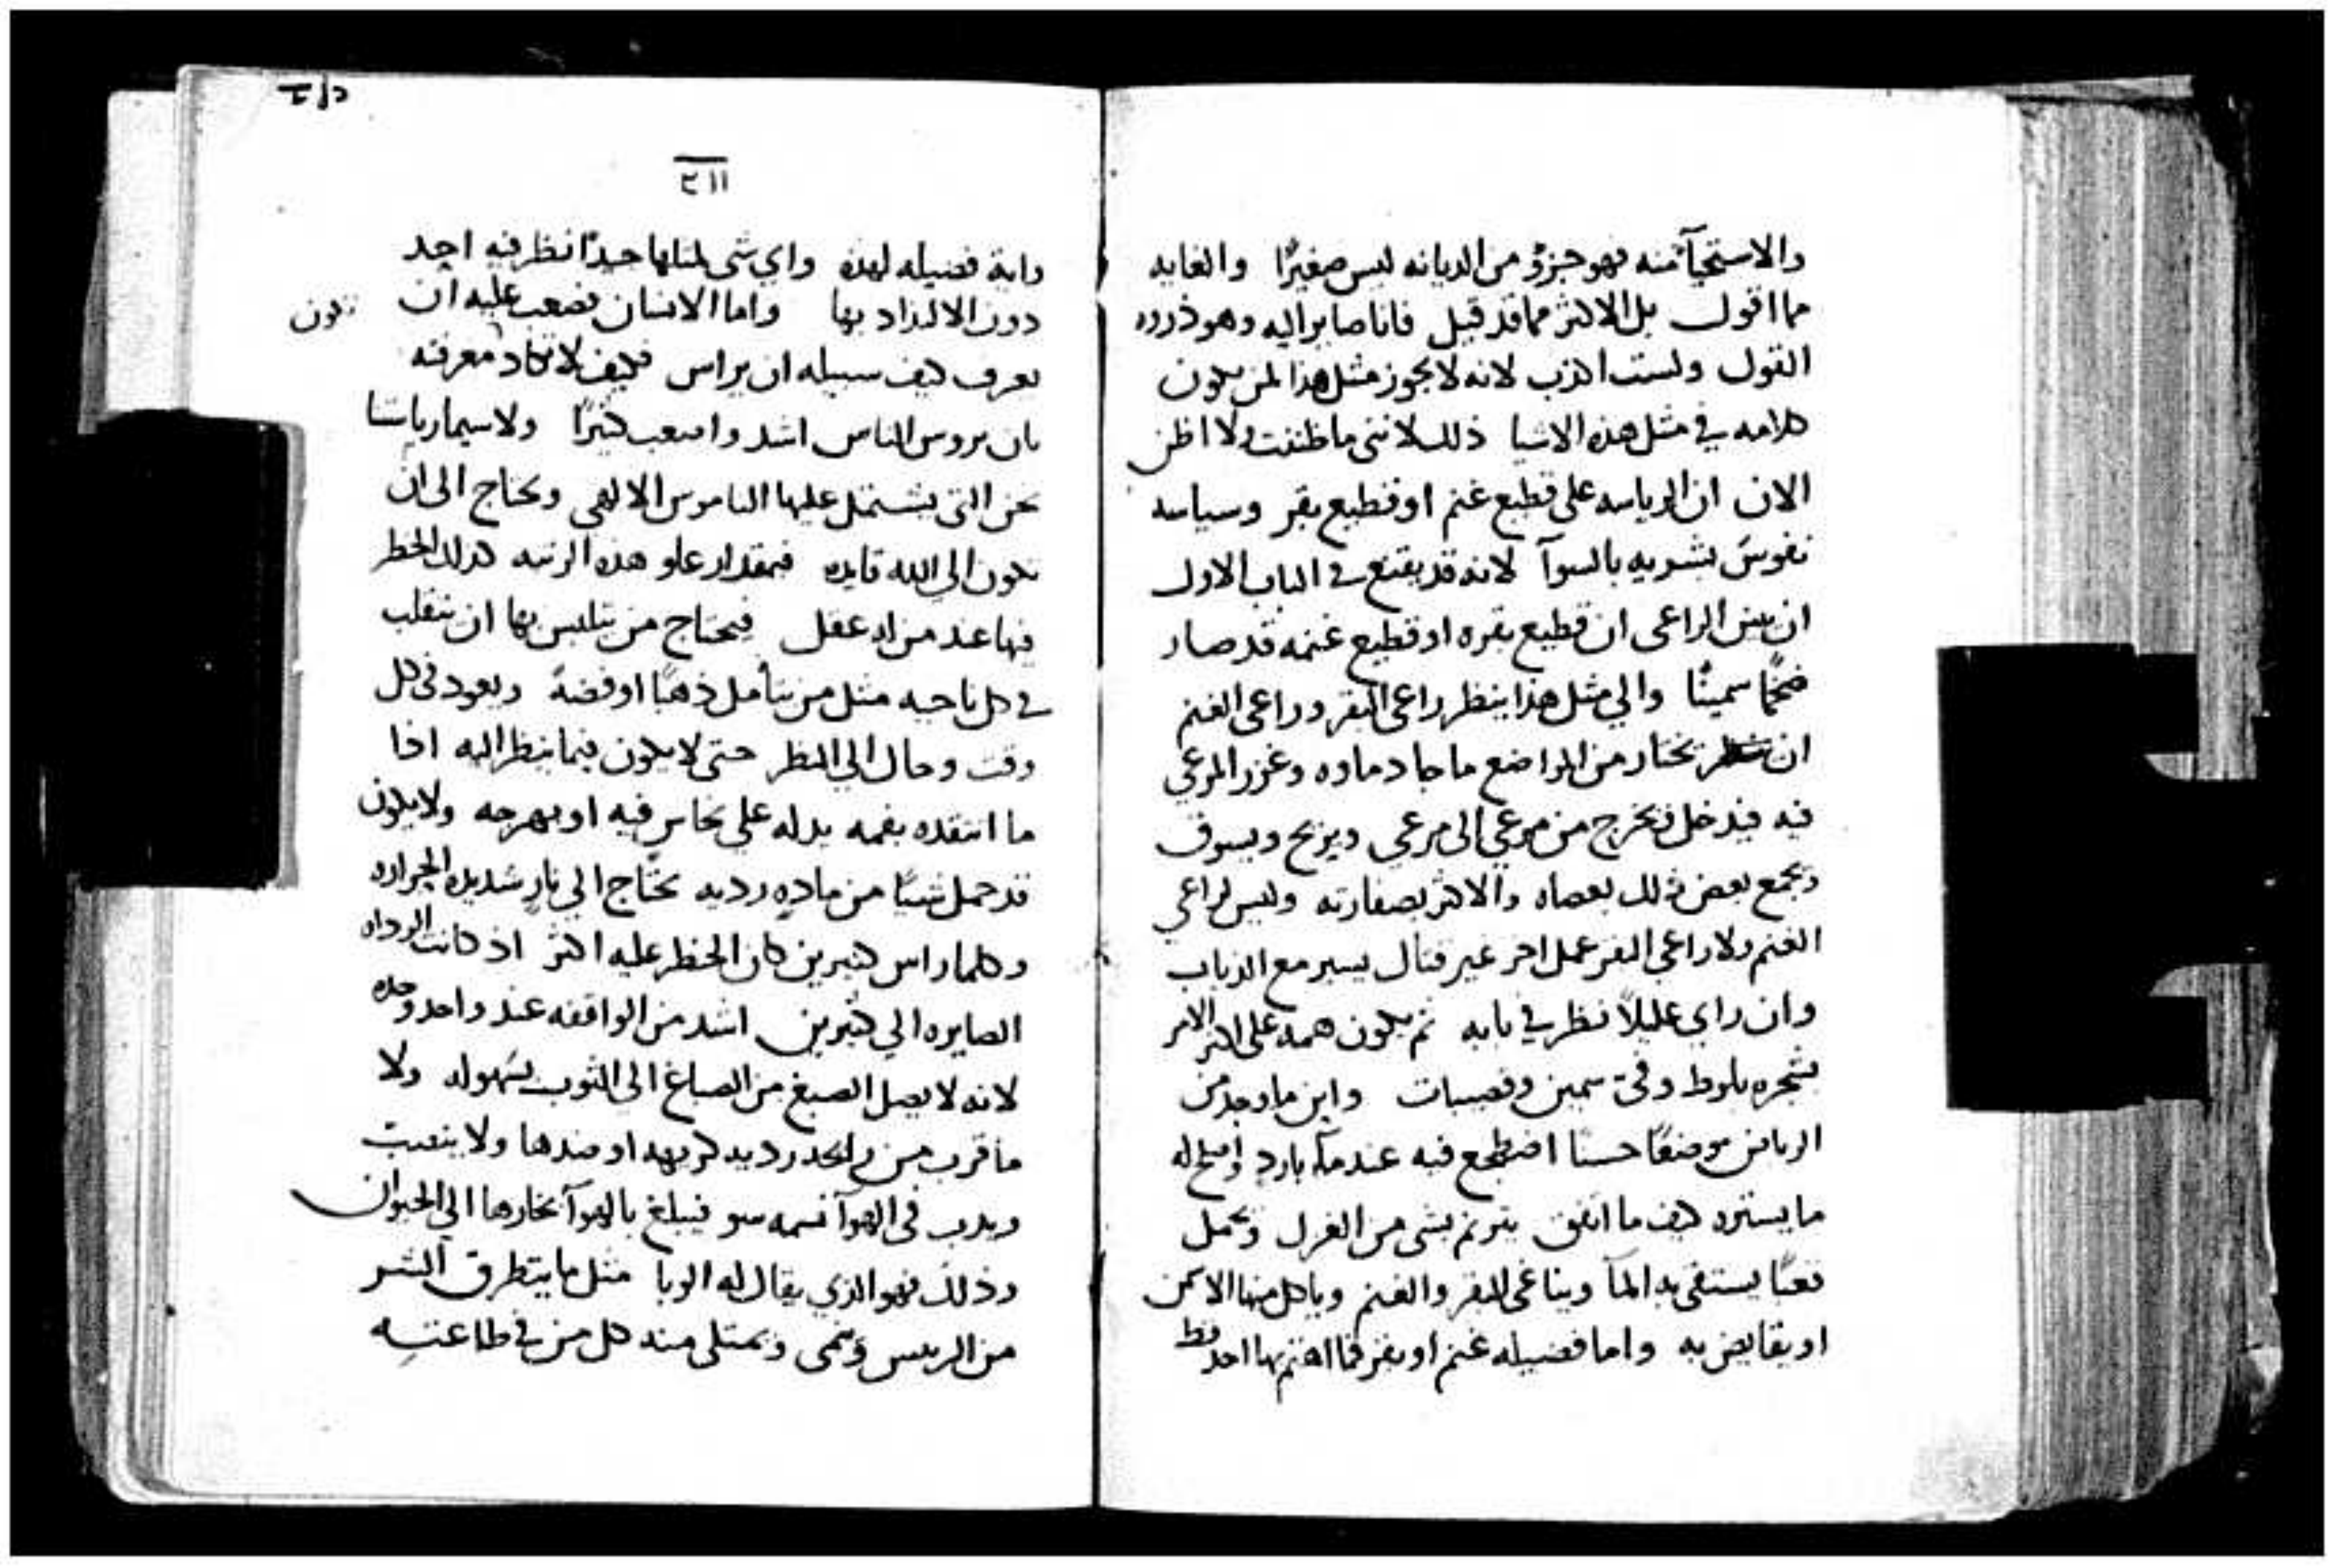 والاستحيآ منه فهو جزؤ من الديانه ليس صغيرًا والغايه
مما اقول بل الاكثر مما قد قيل فانا صاير اليه وهو ذروه
القول ولست اكذب لانه لا يجوز مثل هذا لمن يكون
كلامه في مثل هذه الاشيا ذلك لانني ما ظننت ولا اظن
الان ان الرياسه على قطيع غنم او قطيع بقر وسياسه
نفوس بشريه بالسوآ لانه قد يقنع في الباب الاول
ان يبين الراعي ان قطيع بقره او قطيع غنمه قد صار
ضخمًا سمينًا والي مثل هذا ينظر راعي البقر وراعي الغنم
ان يختار من المواضع ما جاد ماوه وغزر المرعي
فيه فيدخل ويخرج من مرعي الى مرعي ويريح ويسوق
ويجمع بعض ذلك بعصاه والاكثر بصفارته وليس لراعي
الغنم ولا راعي البقر عمل اخر غير قتال يسير مع الدياب
وان راي عليلاً نظر في بابه ثم يكون همه على اكثر الامر
بشجره بلوط وفي سمين وقصبات واين ما وجد من
الرياض موضعًا حسنًا اضطجع فيه عند مآ بارد واصلح له
ما يستره كيف ما اتفق يترنم بشي من الغزل ويحمل
قعبًا يستقي به المآ ويناغي البقر والغنم وياكل منها الاسمن
او يقايض به واما فضيله غنم او بقر فما اهتم بها احد قط
٢١١
وايه فضيله لهذه واي شي لمثلها جيدًا نظر فيه احد
دون الالتذاد بها واما الانسان فصعب عليه ان
يعرف كيف سبيله ان يراس فكيف لا تكاد تكون معرفته
بان يروس الناس اشد واصعب كثيرًا ولا سيما رياستنا
نحن التي يشتمل عليها الناموس الالهي ويحتاج الى ان
تكون الي الله قايده فبمقدار علو هذه الرتبه كذلك الخطر
فيها عند من له عقل فيحتاج من يتلبس بها ان يتقلب
في كل ناحيه مثل من يتأمل ذهبًا او فضهً ويعود في كل
وقت وحال الي النظر حتى لا يكون فيما ينظر اليه اذا
ما انتقده بغمه يدله على نحاس فيه او بهرجه ولا يكون
قد حمل شيًا من ماده رديه يحتاج الي نار شديده الحراره
وكلما راس كثيرين كان الخطر عليه اكثر اذ كانت الرداه
الصايره الي كثيرين اشد من الواقفه عند واحد وحده
لانه لا يصل الصبغ من الصباغ الى الثوب بسهوله ولا
ما قرب من رديه كريهه او ضدها ولا ينعبت
ويدب في الهوآ نسمه سو فيبلغ بالهوآ بخارها الي الحيوان
وذلك فهو الذي يقال له الوبا مثل ما يتطرق الشر
من الرييس وينمي ويمتلي منه كل من في طاعته